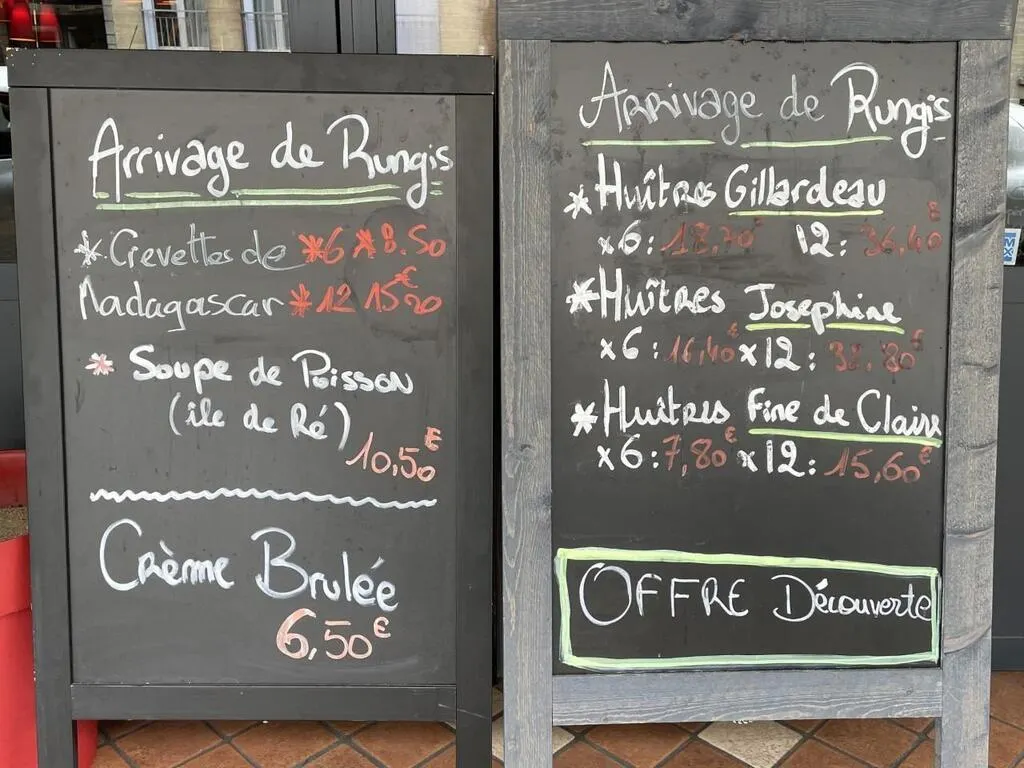 Arrivage de Rungis
*Crevettes de *6 *8.50
Madagascar *12 15€20
* Soupe de Poisson
(île de Ré)
10,50€
Crème Brulée
6,50€
Arrivage de Rungis
*Huîtres Gillardeau
x6: 18,70€ 12: 36,40€
*Huîtres Josephine
x6: 16,40€ x12: 32.80€
*Huîtres Fine de Claire
x6: 7,80€ x12: 15,60€
OFFRE Découverte